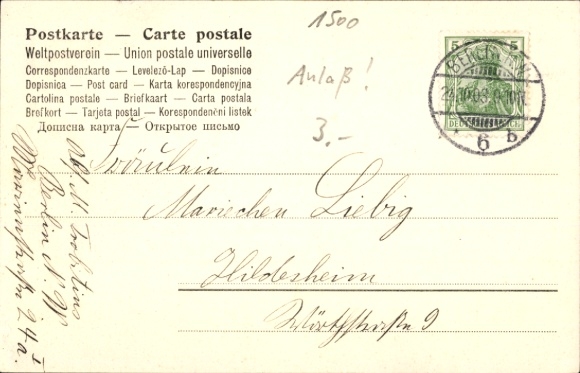 Postkarte — Carte postale
Weltpostverein — Union postale universelle
Correspondenzkarte — Levelező-Lap — Dopisnice
Dopisnica — Post card — Karta korespondencyjna
Cartolina postale — Briefkaart — Carta postala
Brefkort — Tarjeta postal — Korespondenční listek
Дописна карта — Открытое письмо
1500
Anlaß!
3.-
5 5
BERLIN
6
Fräulein
Mariechen Liebig
Hildesheim
9
Abs. M.
Berlin N.
24a. I